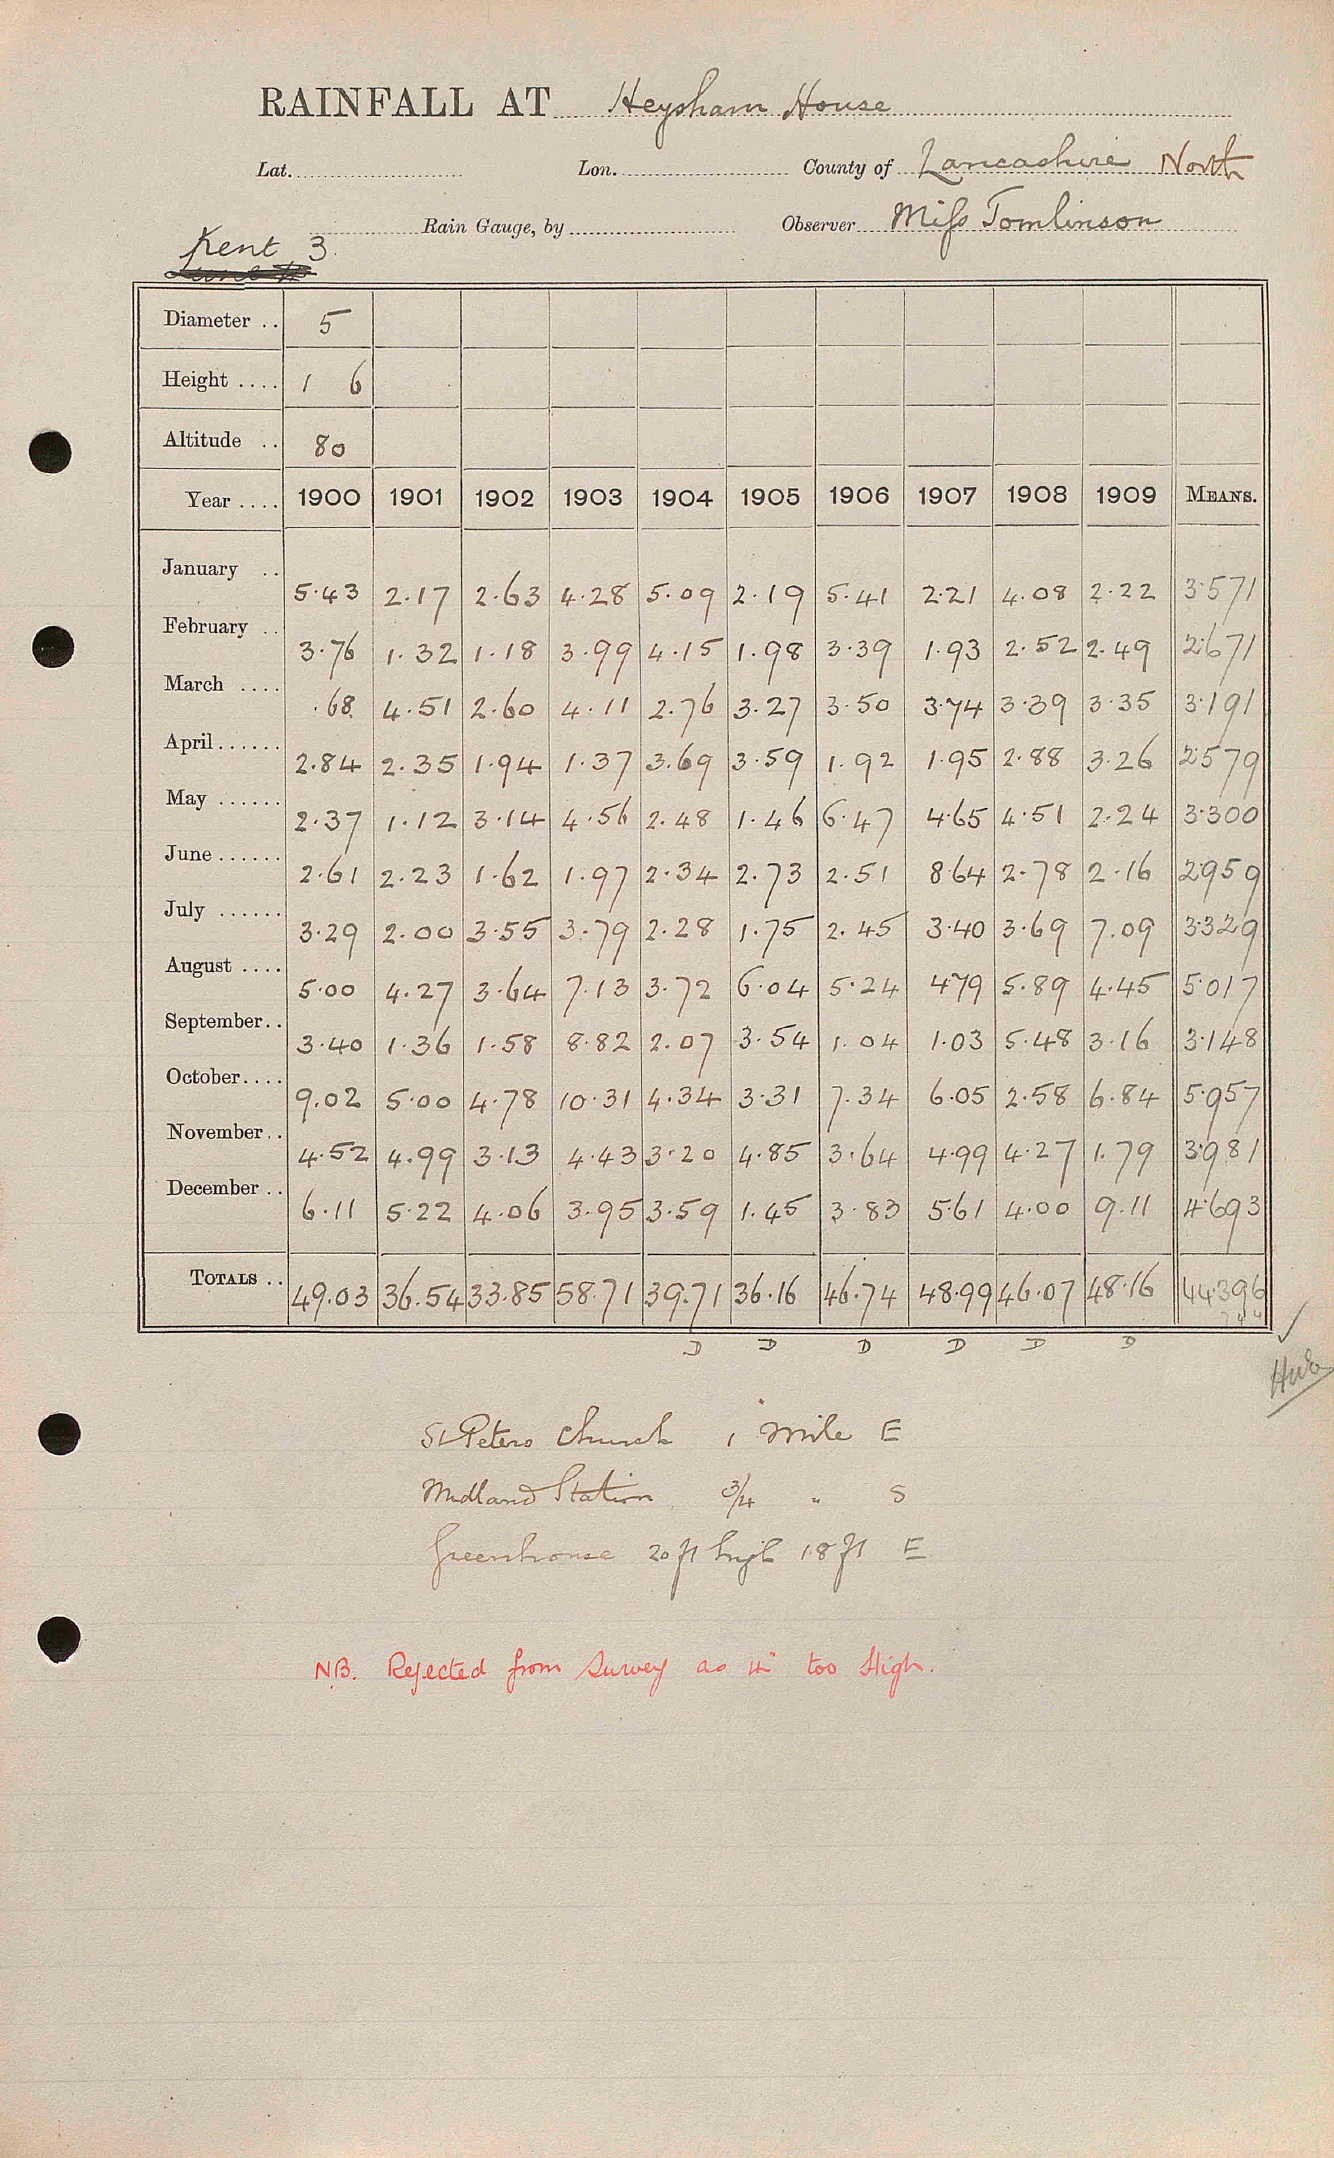 RAINFALL AT Heysham House
Lat. Lon. County of Lancashire North
Rain Gauge, by Observer Miss Tomlinson
Kent 3
Diameter .. 5
Height .... 1 6
Altitude .. 80
Year .... 1900 1901 1902 1903 1904 1905 1906 1907 1908 1909 MEANS.
January .. 5.43 2.17 2.63 4.28 5.09 2.19 5.41 2.21 4.08 2.22 3.571
February .. 3.76 1.32 1.18 3.99 4.15 1.98 3.39 1.93 2.52 2.49 2.671
March .... .68 4.51 2.60 4.11 2.76 3.27 3.50 3.74 3.39 3.35 3.191
April ...... 2.84 2.35 1.94 1.37 3.69 3.59 1.92 1.95 2.88 3.26 2.579
May ...... 2.37 1.12 3.14 4.56 2.48 1.46 6.47 4.65 4.51 2.24 3.300
June ...... 2.61 2.23 1.62 1.97 2.34 2.73 2.51 8.64 2.78 2.16 2.959
July ...... 3.29 2.00 3.55 3.79 2.28 1.75 2.45 3.40 3.69 7.09 3.329
August .... 5.00 4.27 3.64 7.13 3.72 6.04 5.24 4.79 5.89 4.45 5.017
September .. 3.40 1.36 1.58 8.82 2.07 3.54 1.04 1.03 5.48 3.16 3.148
October .... 9.02 5.00 4.78 10.31 4.34 3.31 7.34 6.05 2.58 6.84 5.957
November .. 4.52 4.99 3.13 4.43 3.20 4.85 3.64 4.99 4.27 1.79 3.981
December .. 6.11 5.22 4.06 3.95 3.59 1.45 3.83 5.61 4.00 9.11 4.693
TOTALS .. 49.03 36.54 33.85 58.71 39.71 36.16 46.74 48.99 46.07 48.16 44.396
D D D D D D
St Peters Church 1 Mile E
Midland Station 3/4 " S
Greenhouse 20 ft high 18 ft E
NB. Rejected from Survey as 4" too High.